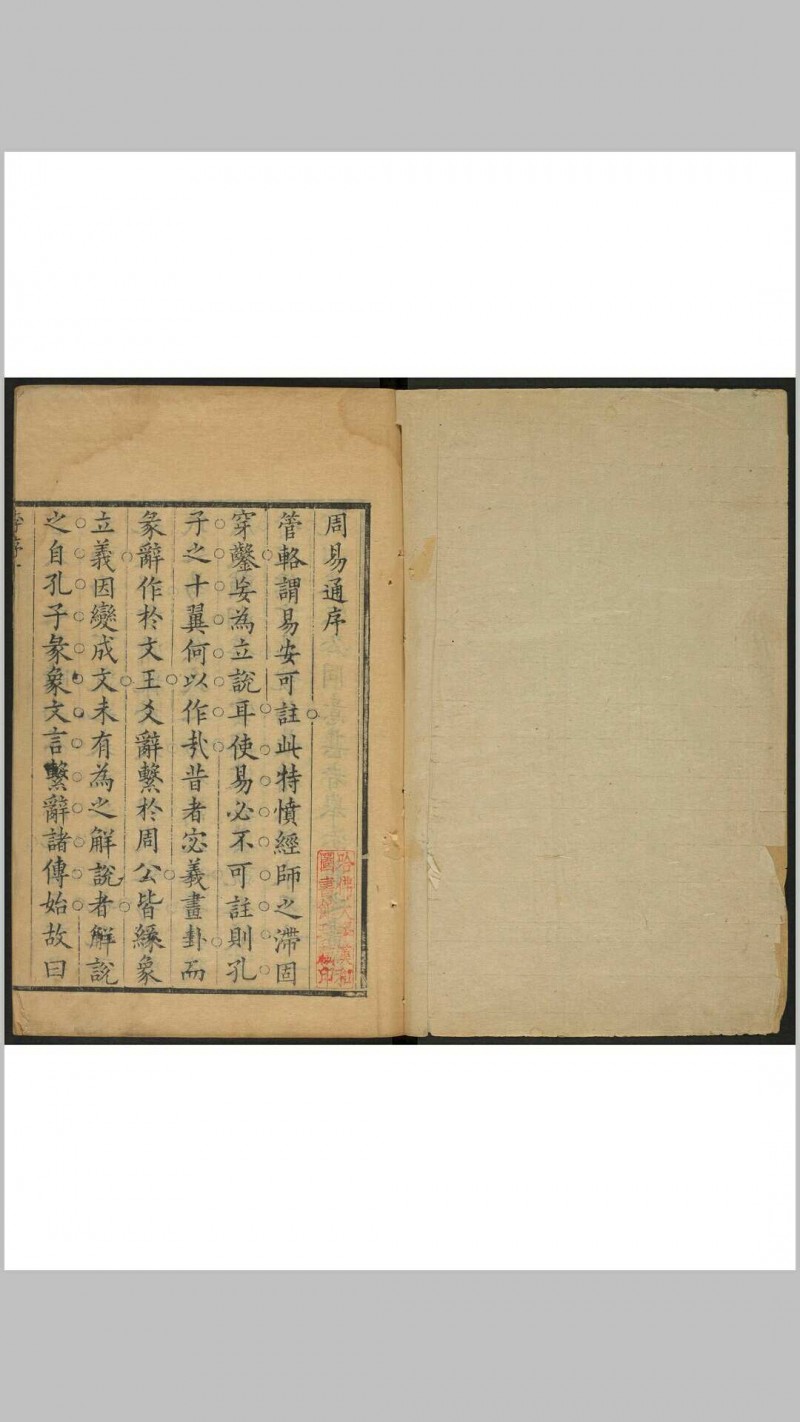 周易通序
管輅謂易安可註此特憤經師之滯固
穿鑿妄為立說耳使易必不可註則孔
子之十翼何以作哉昔者宓義畫卦而
彖辭作於文王爻辭繫於周公皆緣象
立義因變成文未有為之解說者解說
之自孔子彖象文言繫辭諸傳始故曰
哈佛大學漢和
圖書館